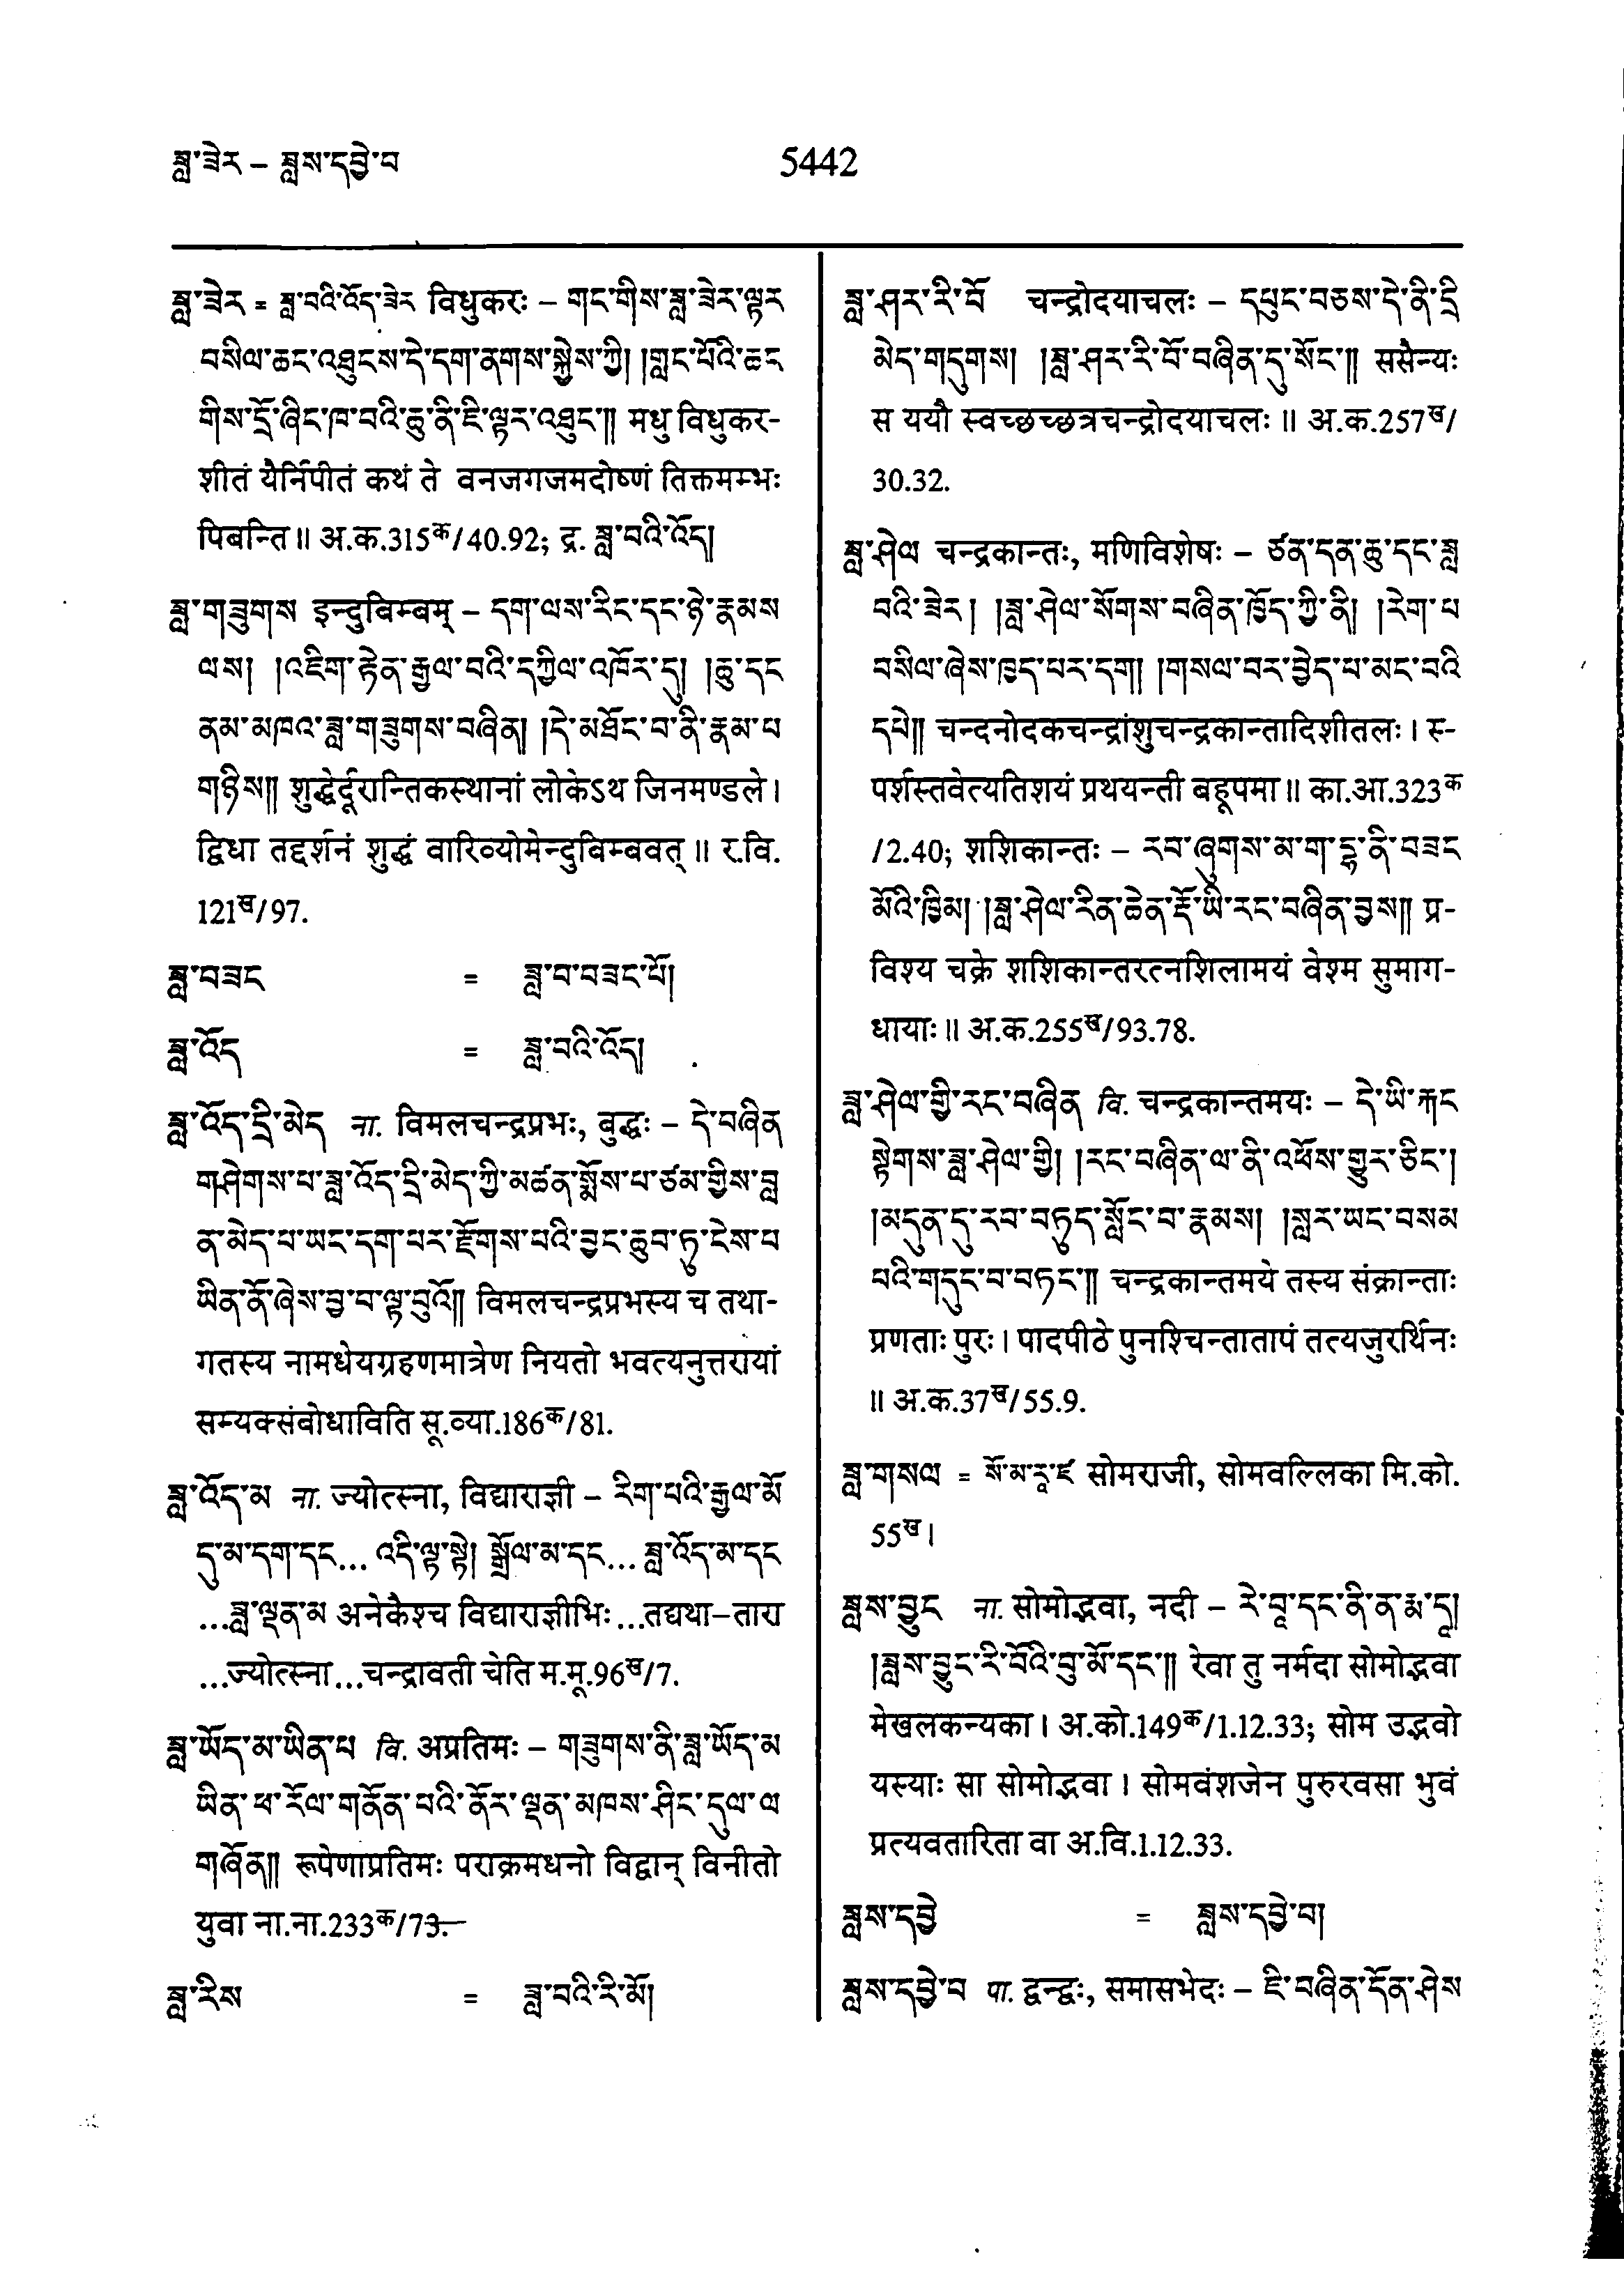 ཟླ་ཟེར – ཟླས་དབྱེ་བ
5442
ཟླ་ཟེར = ཟླ་བའི་འོད་ཟེར विधुकरः – གང་གིས་ཟླ་ཟེར་ལྟར
བསིལ་ཆང་འཐུངས་དེ་དག་ནགས་སྐྱེས་ཀྱི། །གླང་པོའི་ཆང
གིས་དྲོ་ཞིང་ཁ་བའི་ཆུ་ནི་ཇི་ལྟར་འཐུང་༎ मधु विधुकर-
शीतं यैर्निपीतं कथं ते वनजगजमदोष्णं तिक्तमम्भः
पिबन्ति॥ अ.क.315क/40.92; द्र. ཟླ་བའི་འོད།
ཟླ་གཟུགས इन्दुबिम्बम् – དག་ལས་རིང་དང་ཉེ་རྣམས
ལས། །འཇིག་རྟེན་རྒྱལ་བའི་དཀྱིལ་འཁོར་དུ། །ཆུ་དང
ནམ་མཁའ་ཟླ་གཟུགས་བཞིན། །དེ་མཐོང་བ་ནི་རྣམ་པ
གཉིས༎ शुद्धेर्दूरान्तिकस्थानां लोकेऽथ जिनमण्डले।
द्विधा तद्दर्शनं शुद्धं वारिव्योमेन्दुबिम्बवत्॥ र.वि.
121ख/97.
ཟླ་བཟང = ཟླ་བ་བཟང་པོ།
ཟླ་འོད = ཟླ་བའི་འོད།
ཟླ་འོད་དྲི་མེད ना. विमलचन्द्रप्रभः, बुद्धः – དེ་བཞིན
གཤེགས་པ་ཟླ་འོད་དྲི་མེད་ཀྱི་མཚན་སྨོས་པ་ཙམ་གྱིས་བླ
ན་མེད་པ་ཡང་དག་པར་རྫོགས་པའི་བྱང་ཆུབ་ཏུ་ངེས་པ
ཡིན་ནོ་ཞེས་བྱ་བ་ལྟ་བུའོ༎ विमलचन्द्रप्रभस्य च तथा-
गतस्य नामधेयग्रहणमात्रेण नियतो भवत्यनुत्तरायां
सम्यक्संबोधाविति सू.व्या.186क/81.
ཟླ་འོད་མ ना. ज्योत्स्ना, विद्याराज्ञी – རིག་པའི་རྒྱལ་མོ
དུ་མ་དག་དང... འདི་ལྟ་སྟེ། སྒྲོལ་མ་དང... ཟླ་འོད་མ་དང
...ཟླ་ལྡན་མ अनेकैश्च विद्याराज्ञीभिः...तद्यथा–तारा
...ज्योत्स्ना...चन्द्रावती चेति म.मू.96ख/7.
ཟླ་ཡོད་མ་ཡིན་པ वि. अप्रतिमः – གཟུགས་ནི་ཟླ་ཡོད་མ
ཡིན་ཕ་རོལ་གནོན་པའི་ནོར་ལྡན་མཁས་ཤིང་དུལ་ལ
གཞོན༎ रूपेणाप्रतिमः पराक्रमधनो विद्वान् विनीतो
युवा ना.ना.233क/73.
ཟླ་རིས = ཟླ་བའི་རི་མོ།
ཟླ་ཤར་རི་བོ चन्द्रोदयाचलः – དཔུང་བཅས་དེ་ནི་དྲི
མེད་གདུགས། །ཟླ་ཤར་རི་བོ་བཞིན་དུ་སོང་༎ ससैन्यः
स ययौ स्वच्छच्छत्रचन्द्रोदयाचलः॥ अ.क.257ख/
30.32.
ཟླ་ཤེལ चन्द्रकान्तः, मणिविशेषः – ཙན་དན་ཆུ་དང་ཟླ
བའི་ཟེར། །ཟླ་ཤེལ་སོགས་བཞིན་ཁྱོད་ཀྱི་ནི། །རེག་པ
བསིལ་ཞེས་ཁྱད་པར་དག། །གསལ་བར་བྱེད་པ་མང་བའི
དཔེ༎ चन्दनोदकचन्द्रांशुचन्द्रकान्तादिशीतलः। स्-
पर्शस्तवेत्यतिशयं प्रथयन्ती बहूपमा॥ का.आ.323क
/2.40; शशिकान्तः – རབ་ཞུགས་མ་ག་དྷ་ནི་བཟང
མོའི་ཁྱིམ། །ཟླ་ཤེལ་རིན་ཆེན་རྡོ་ཡི་རང་བཞིན་བྱས༎ प्र-
विश्य चक्रे शशिकान्तरत्नशिलामयं वेश्म सुमाग-
धायाः॥ अ.क.255ख/93.78.
ཟླ་ཤེལ་གྱི་རང་བཞིན वि. चन्द्रकान्तमयः – དེ་ཡི་རྐང
སྟེགས་ཟླ་ཤེལ་གྱི། །རང་བཞིན་ལ་ནི་འཕོས་གྱུར་ཅིང་།
།མདུན་དུ་རབ་བཏུད་སློང་བ་རྣམས། །སླར་ཡང་བསམ
པའི་གདུང་བ་བཏང་༎ चन्द्रकान्तमये तस्य संक्रान्ताः
प्रणताः पुरः। पादपीठे पुनश्चिन्तातापं तत्यजुरर्थिनः
॥ अ.क.37ख/55.9.
ཟླ་གསལ = སོ་མ་རཱ་ཛ सोमराजी, सोमवल्लिका मि.को.
55ख।
ཟླས་བྱུང ना. सोमोद्भवा, नदी – རེ་བཱ་དང་ནི་ན་རྨ་དཱ།
།ཟླས་བྱུང་རི་བོའི་བུ་མོ་དང་༎ रेवा तु नर्मदा सोमोद्भवा
मेखलकन्यका। अ.को.149क/1.12.33; सोम उद्भवो
यस्याः सा सोमोद्भवा। सोमवंशजेन पुरुरवसा भुवं
प्रत्यवतारिता वा अ.वि.1.12.33.
ཟླས་དབྱེ = ཟླས་དབྱེ་བ།
ཟླས་དབྱེ་བ पा. द्वन्द्वः, समासभेदः – ཇི་བཞིན་དོན་ཤེས